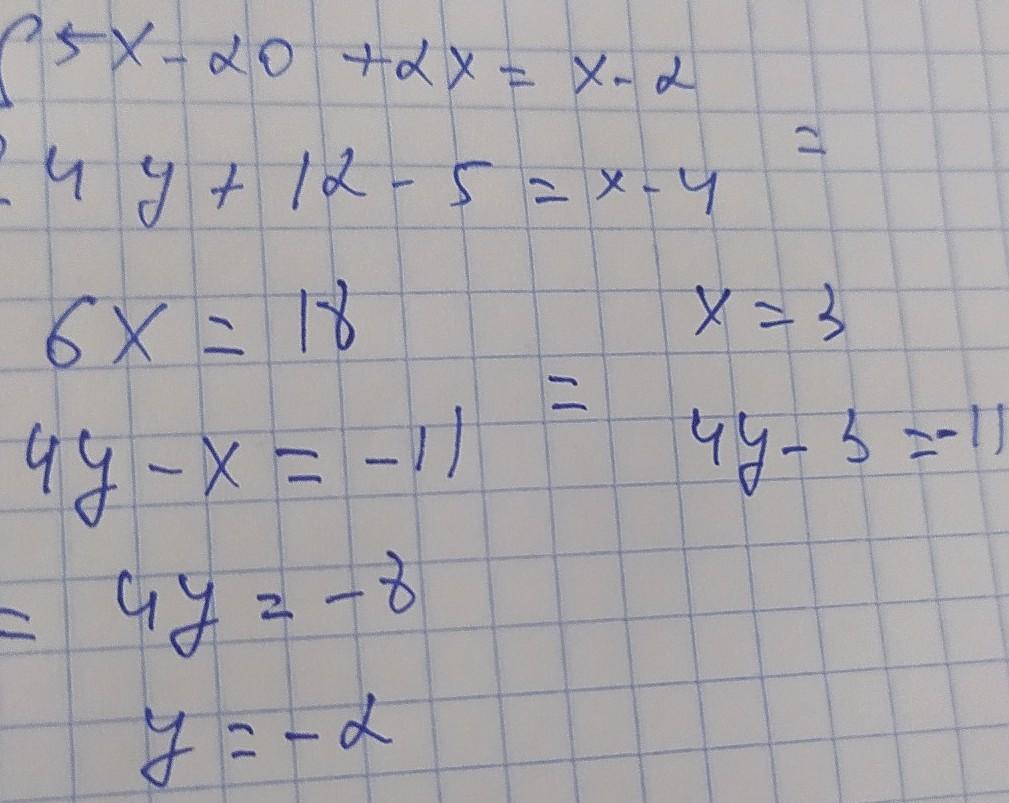 { 5x - 20 + 2x = x - 2
4y + 12 - 5 = x - 4 =
6x = 18 x = 3
=
4y - x = -11 4y - 3 = -11
= 4y = -8
y = -2